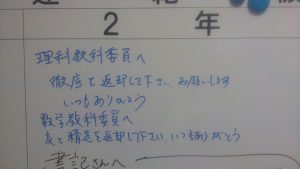 ２年
理科教科委員へ
徹底を返却して下さい お願いします
いつもありがとう
数学教科委員へ
友と精選を返却して下さい いつもありがとう
書記さんへ